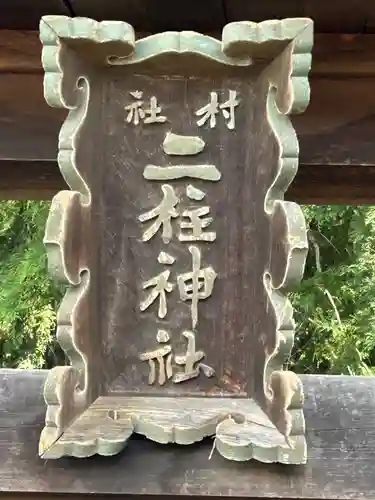 村社
二柱神社